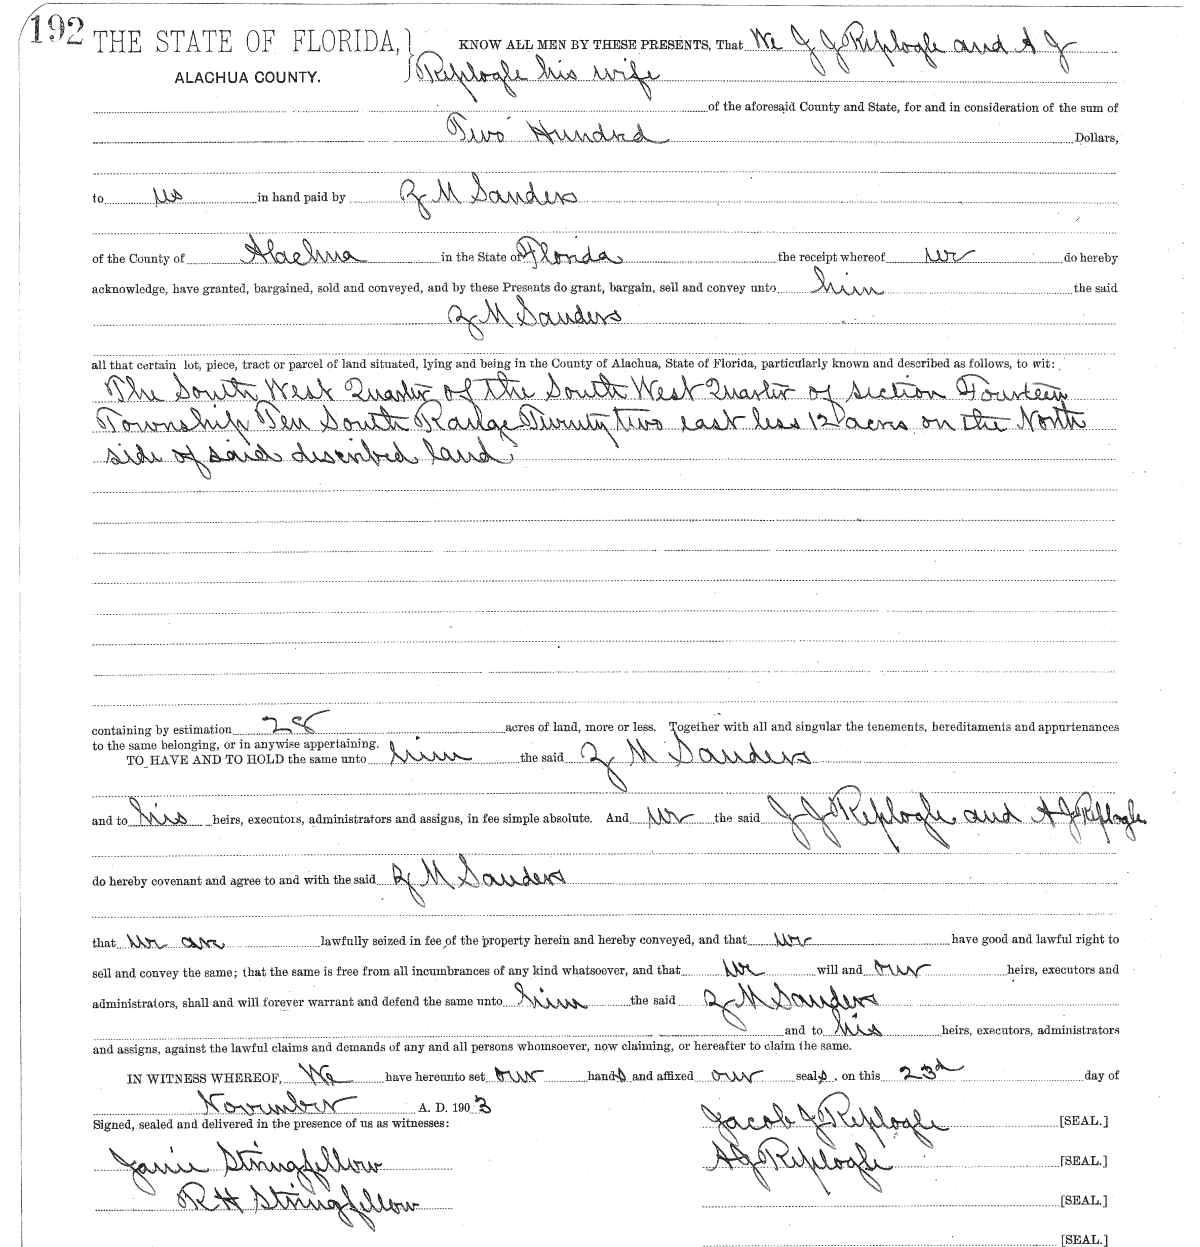 192 THE STATE OF FLORIDA, } KNOW ALL MEN BY THESE PRESENTS, That We J J Replogle and A J
ALACHUA COUNTY. Replogle his wife
of the aforesaid County and State, for and in consideration of the sum of
Two Hundred Dollars,
to us in hand paid by Z M Sanders
of the County of Alachua in the State of Florida the receipt whereof we do hereby
acknowledge, have granted, bargained, sold and conveyed, and by these Presents do grant, bargain, sell and convey unto him the said
Z M Sanders
all that certain lot, piece, tract or parcel of land situated, lying and being in the County of Alachua, State of Florida, particularly known and described as follows, to wit:
The South West Quarter of the South West Quarter of section Fourteen
Township Ten South Range Twenty two east less 12 acres on the North
side of said described land
containing by estimation 28 acres of land, more or less. Together with all and singular the tenements, hereditaments and appurtenances
to the same belonging, or in anywise appertaining.
TO HAVE AND TO HOLD the same unto him the said Z M Sanders
and to his heirs, executors, administrators and assigns, in fee simple absolute. And we the said J J Replogle and A J Replogle
do hereby covenant and agree to and with the said Z M Sanders
that we are lawfully seized in fee of the property herein and hereby conveyed, and that we have good and lawful right to
sell and convey the same; that the same is free from all incumbrances of any kind whatsoever, and that we will and our heirs, executors and
administrators, shall and will forever warrant and defend the same unto him the said Z M Sanders
and to his heirs, executors, administrators
and assigns, against the lawful claims and demands of any and all persons whomsoever, now claiming, or hereafter to claim the same.
IN WITNESS WHEREOF, We have hereunto set our hands and affixed our seals, on this 23d day of
November A. D. 1903
Jacob J Replogle [SEAL.]
Signed, sealed and delivered in the presence of us as witnesses:
Janie Stringfellow A J Replogle [SEAL.]
R H Stringfellow [SEAL.]
[SEAL.]